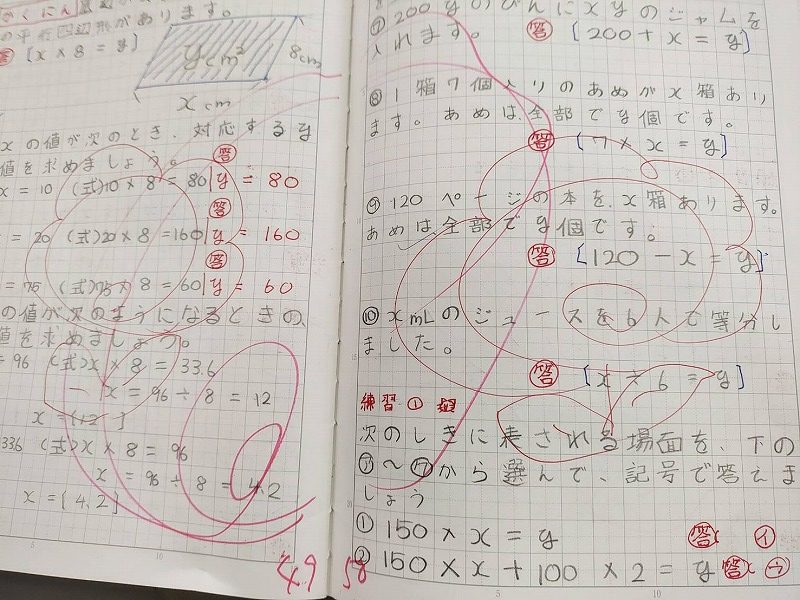 かくにん
の平行四辺形があります。
答 [x × 8 = y]
ycm²
8cm
xcm
xの値が次のとき、対応するy
値を求めましょう。
答
x = 10 (式)10 × 8 = 80 | y = 80
答
= 20 (式)20 × 8 = 160 | y = 160
答
= 75 (式)75 × 8 = 60 | y = 60
の値が次のようになるときの、
値を求めましょう。
= 96 (式)x × 8 = 33.6
x = 96 ÷ 8 = 12
x = [12]
336 (式)x × 8 = 96
x = 96 ÷ 8 = 4.2
x = [4.2]
49
⑦200gのびんにxgのジャムを
入れます。
答 [200 + x = y]
⑧1箱7個入りのあめがx箱あり
ます。あめは、全部でy個です。
答 [7 × x = y]
⑨120ページの本を、x箱あります。
あめは全部でy個です。
答 [120 − x = y]
⑩xmLのジュースを6人で等分し
ました。
答 [x ÷ 6 = y]
練習①
次のしきに表される場面を、下の
㋐〜㋒から選んで、記号で答えま
しょう
① 150 × x = y 答 ㋑
② 150 × x + 100 × 2 = y 答 ㋒
58